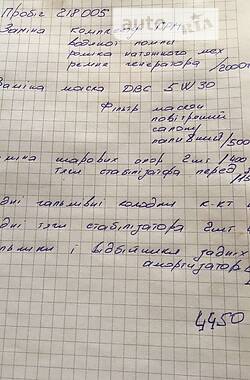 Пробіг 218005
Заміна компекту ГРМ
водяної помпи
роліка натяжного мех
ременя генератора /2000г
Заміна масла DBC 5W30
Фільтр масляни
повітряний
салону
паливний /500
міна шарових опор 2шт /400
тяги стабілізатора перед
дні гальмівні колодки к-кт
дні тяги стабілізатора 2шт
льники і відбійники задніх
амортизатор
4450